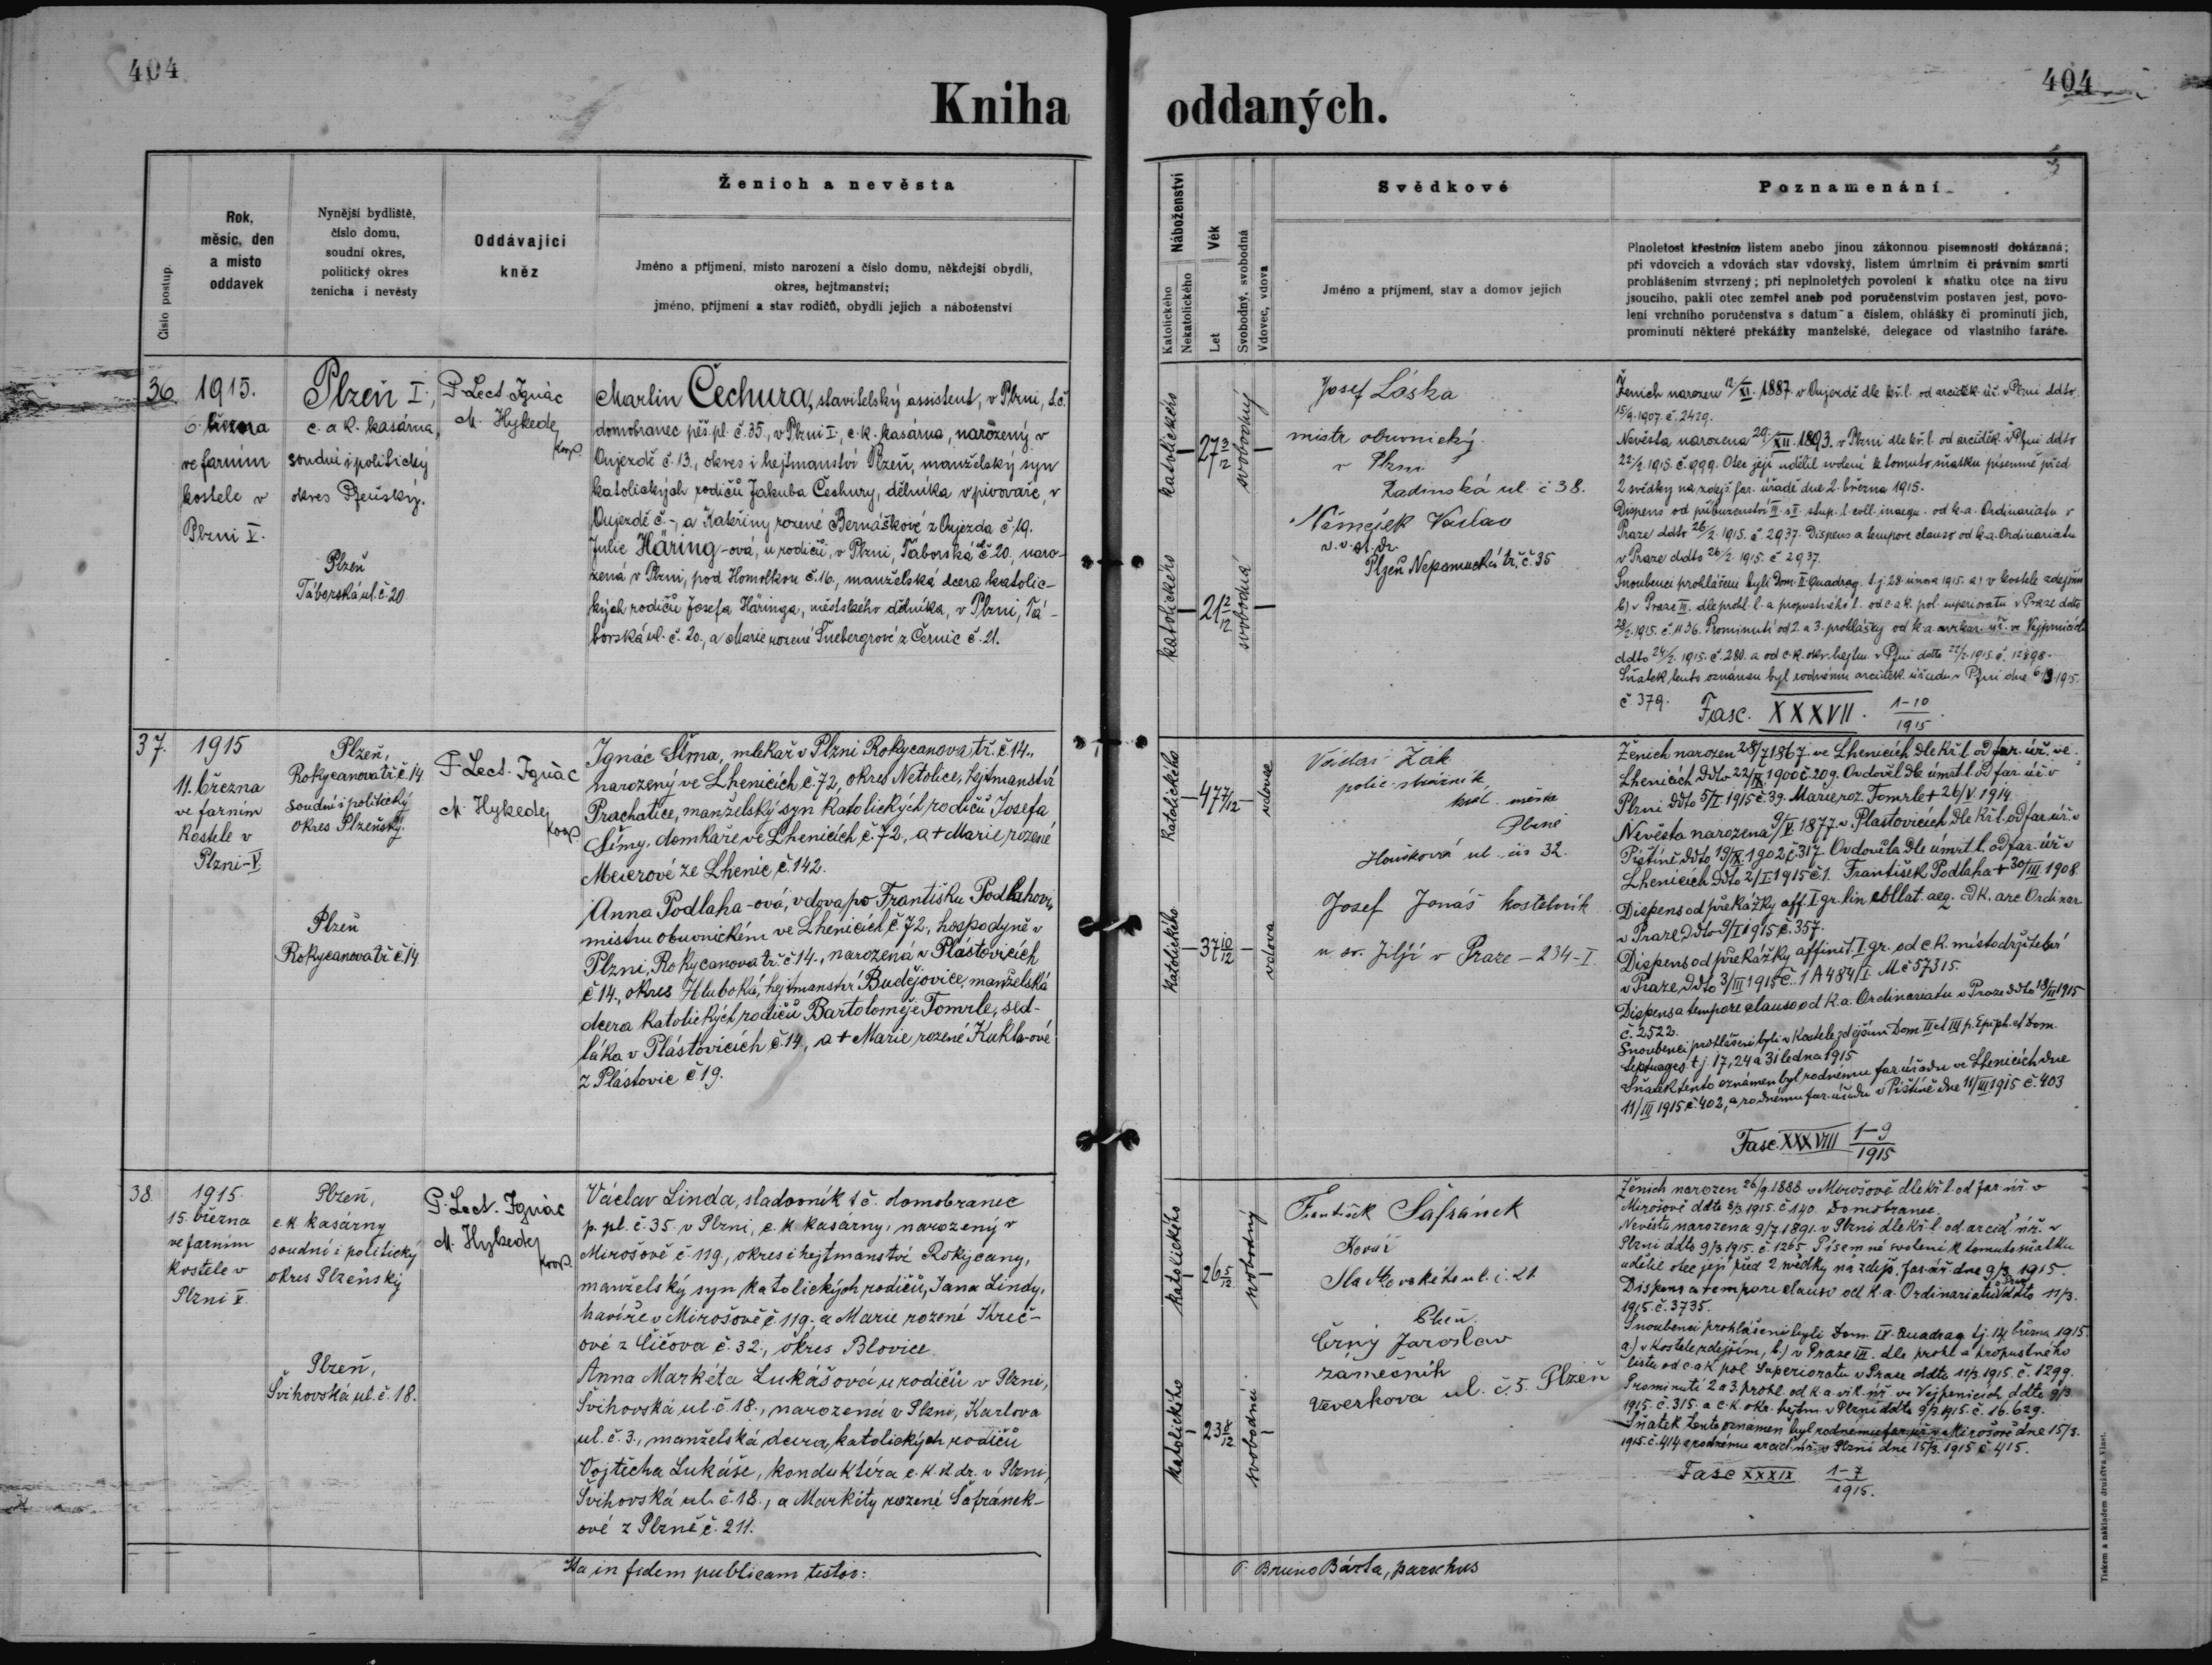 404
404
Kniha oddaných.
Číslo postup.
Rok,
měsíc, den
a místo
oddavek
Nynější bydliště,
číslo domu,
soudní okres,
politický okres
ženicha i nevěsty
Oddávající
kněz
Ženich a nevěsta
Jméno a příjmení, místo narození a číslo domu, někdejší obydlí,
okres, hejtmanství;
jméno, příjmení a stav rodičů, obydlí jejich a náboženství
Náboženství
Katolického
Nekatolického
Věk
Let
Svobodný, svobodná
Vdovec, vdova
Svědkové
Jméno a příjmení, stav a domov jejich
Poznamenání
Plnoletost křestním listem anebo jinou zákonnou písemností dokázaná;
při vdovcích a vdovách stav vdovský, listem úmrtním či právním smrti
prohlášením stvrzený; při neplnoletých povolení k sňatku otce na živu
jsoucího, pakli otec zemřel aneb pod poručenstvím postaven jest, povo-
lení vrchního poručenstva s datum a číslem, ohlášky či prominutí jich,
prominutí některé překážky manželské, delegace od vlastního faráře.
36
1915.
6. března
ve farním
kostele v
Plzni V.
Plzeň I.,
c. a k. kasárna,
soudní i politický
okres Plzeňský.
Plzeň
Táborská ul. č. 20.
P. Lect. Ignác
M. Hykede,
koop.
Martin Čechura, stavitelský assistent, v Plzni, t.č.
domobranec pěš. pl. č. 35., v Plzni I., c. k. kasárna, narozený v
Oujezdě č. 13., okres i hejtmanství Plzeň, manželský syn
katolických rodičů Jakuba Čechury, dělníka v pivovaře, v
Oujezdě č. -, a Kateřiny rozené Bernáškové z Oujezda č. 19.
Julie Häring-ová, u rodičů, v Plzni, Táborská ul. č. 20., naro-
zená v Plzni, pod Homolkou č. 16., manželská dcera katolic-
kých rodičů Josefa Häringa, městského dělníka, v Plzni, Tá-
borská ul. č. 20., a Marie rozené Šnebergrové z Černic č. 21.
katolického
27 3/12
svobodný
katolického
21 2/12
svobodná
Josef Láska
mistr obuvnický
v Plzni
Radinská ul. č 38.
Němeček Václav
Plzeň Nepomucká tř. č. 35
Ženich narozen 12/XI. 1887. v Oujezdě dle kř. l. od arciděk. úř. v Plzni ddto.
15/9. 1907. č. 2429.
Nevěsta narozena 29./XII. 1893. v Plzni dle kř. l. od arciděk. v Plzni ddto
22/2. 1915. č. 999. Otec její udělil svolení k tomuto sňatku písemně před
2 svědky na zdejš. far. úřadě dne 2. března 1915.
Dispens od příbuzenství III. a II. stup. l. coll. inaequ. od k. a. Ordinariatu v
Praze ddto 26/2. 1915. č. 2937. Dispens a tempore clauso od k. a. Ordinariatu
v Praze ddto 26/2. 1915. č 2937.
Snoubenci prohlášeni byli Dom. II. Quadrag. t. j. 28. února 1915. a) v kostele zdejším
b) v Praze III. dle prohl. l. a propustného l. od c. a k. pol. superioratu v Praze ddto
28/2. 1915. č. 1136. Prominutí od 2. a 3. prohlášky od k. a. vikar. úř. ve Vejprnicích
ddto 24/2. 1915. č. 280. a od c. k. okr. hejtm. v Plzni ddto 22/2. 1915. č. 12898.
Sňatek tento oznámen byl rodnému arciděk. úřadu v Plzni dne 6/3. 1915.
č. 379.
Fasc. XXXVII. 1-10/1915.
37.
1915
11. března
ve farním
kostele v
Plzni-V.
Plzeň,
Rokycanova tř. č. 14
soudní i politický
okres Plzeňský.
Plzeň
Rokycanova tř. č. 14
P. Lect. Ignác
M. Hykede,
koop.
Ignác Šíma, mlékař v Plzni Rokycanova tř. č. 14.,
narozený ve Lhenicích č. 72, okres Netolice, hejtmanství
Prachatice, manželský syn katolických rodičů Josefa
Šímy, domkáře ve Lhenicích č. 72, a + Marie rozené
Meierové ze Lhenic č. 142.
Anna Podlaha-ová, vdova po Františku Podlahovi,
mistru obuvnickém ve Lhenicích č. 72, hospodyně v
Plzni, Rokycanova tř. č. 14., narozená v Plástovicích
č. 14., okres Hluboká, hejtmanství Budějovice, manželská
dcera katolických rodičů Bartoloměje Tomrle, sed-
láka v Plástovicích č. 14, a + Marie rozené Kukla-ové
z Plástovic č. 19.
Katolického
47 7/12
vdovec
Katolického
37 10/12
vdova
Václav Žák
polic. strážník
král. města
Plzně
Houškova ul. čís 32.
Josef Jonáš kostelník
u sv. Jiljí v Praze - 234-I
Ženich narozen 28/7 1867. ve Lhenicích dle kř. l. od far. úř. ve
Lhenicích ddto 22/IX 1900 č. 209. Ovdověl dle úmrt. l. od far. úř. v
Plzni ddto 5/I. 1915 č. 39. Marie roz. Tomrle + 26/V. 1914.
Nevěsta narozena 9/V. 1877. v Plástovicích dle kř. l. od far. úř. v
Pištíně ddto 19/IX. 1902 č. 317. Ovdověla dle úmrt. l. od far. úř. v
Lhenicích ddto 2/I. 1915 č. 1. František Podlaha + 30/III. 1908.
Dispens od překážky aff. I gr. lin collat. aeq. od k. arc Ordinar.
v Praze ddto 9/I 1915 č. 357.
Dispens od překážky affinit. I. gr. od c. k. místodržitelství
v Praze, ddto 3/III 1915 č. 1 A 484/1. M č 57315.
Dispens a tempore clauso od k. a. Ordinariatu v Praze ddto 18/II 1915
č. 2522.
Snoubenci prohlášeni byli v kostele zdejším Dom II et III p. Epiph. et Dom.
Septuages. t. j. 17., 24 a 31 ledna 1915
Sňatek tento oznámen byl rodnému far. úřadu ve Lhenicích dne
11/III 1915 č. 402, a rodnému far. úřadu v Pištíně dne 11/III 1915 č. 403
Fasc. XXXVIII 1-9/1915
38
1915.
15. března
ve farním
kostele v
Plzni V.
Plzeň,
c. k. kasárny
soudní i politický
okres Plzeňský
Plzeň,
Švihovská ul. č. 18.
P. Lect. Ignác
M. Hykede,
koop.
Václav Linda, sladovník t č. domobranec
p. pl. č. 35. v Plzni, c. k. kasárny, narozený v
Mirošově č. 119., okres i hejtmanství Rokycany,
manželský syn katolických rodičů, Jana Lindy,
havíře v Mirošově č. 119., a Marie rozené Kreč-
ové z Číčova č. 32., okres Blovice.
Anna Markéta Lukášová u rodičů v Plzni,
Švihovská ul. č. 18., narozená v Plzni, Karlova
ul. č. 3., manželská dcera, katolických rodičů
Vojtěcha Lukáše, konduktéra c. k. st. dr. v Plzni,
Švihovská ul. č. 18., a Markéty rozené Šafránek-
ové z Plzně č. 211.
katolického
26 5/12
svobodný
katolického
23 8/12
svobodná
František Šafránek
Kovář
Plzeň.
Černý Jaroslav
zámečník
Veverkova ul. č. 5. Plzeň
Ženich narozen 26/9. 1888 v Mirošově dle kř l. od far. úř. v
Mirošově ddto 8/3. 1915. č 140. Domobranec.
Nevěsta narozena 9/7. 1891. v Plzni dle kř. l. od arcid. úř. v
Plzni ddto 9/3. 1915. č. 1265. Písemné svolení k tomuto sňatku
udělil otec její před 2 svědky na zdejš. far. úř. dne 9/3. 1915.
Dispens a tempore clauso od k. a. Ordinariatu v Praze ddto 11/3.
1915. č. 3735.
Snoubenci prohlášeni byli Dom. IV. Quadrag. tj. 14. března 1915.
a) v kostele zdejším, b) v Praze III. dle prohl. a propustného
listu od c. a k. pol. Superioratu v Praze ddto 11/3. 1915. č. 1299.
Prominutí 2 a 3. prohl. od k. a. vik. úř. ve Vejprnicích, ddto 9/3
1915. č. 315. a c. k. okr. hejtm. v Plzni ddto 9/3. 1915. č. 16.629.
Sňatek tento oznámen byl rodnému far. úř. v Mirošově dne 15/3.
1915. č. 414 a rodnému arcid. úř. v Plzni dne 15/3. 1915 č. 415.
Fasc XXXIX 1-7/1915.
Ita in fidem publicam testor:
P. Bruno Bárta, parochus
Tiskem a nákladem družstva Vlast.